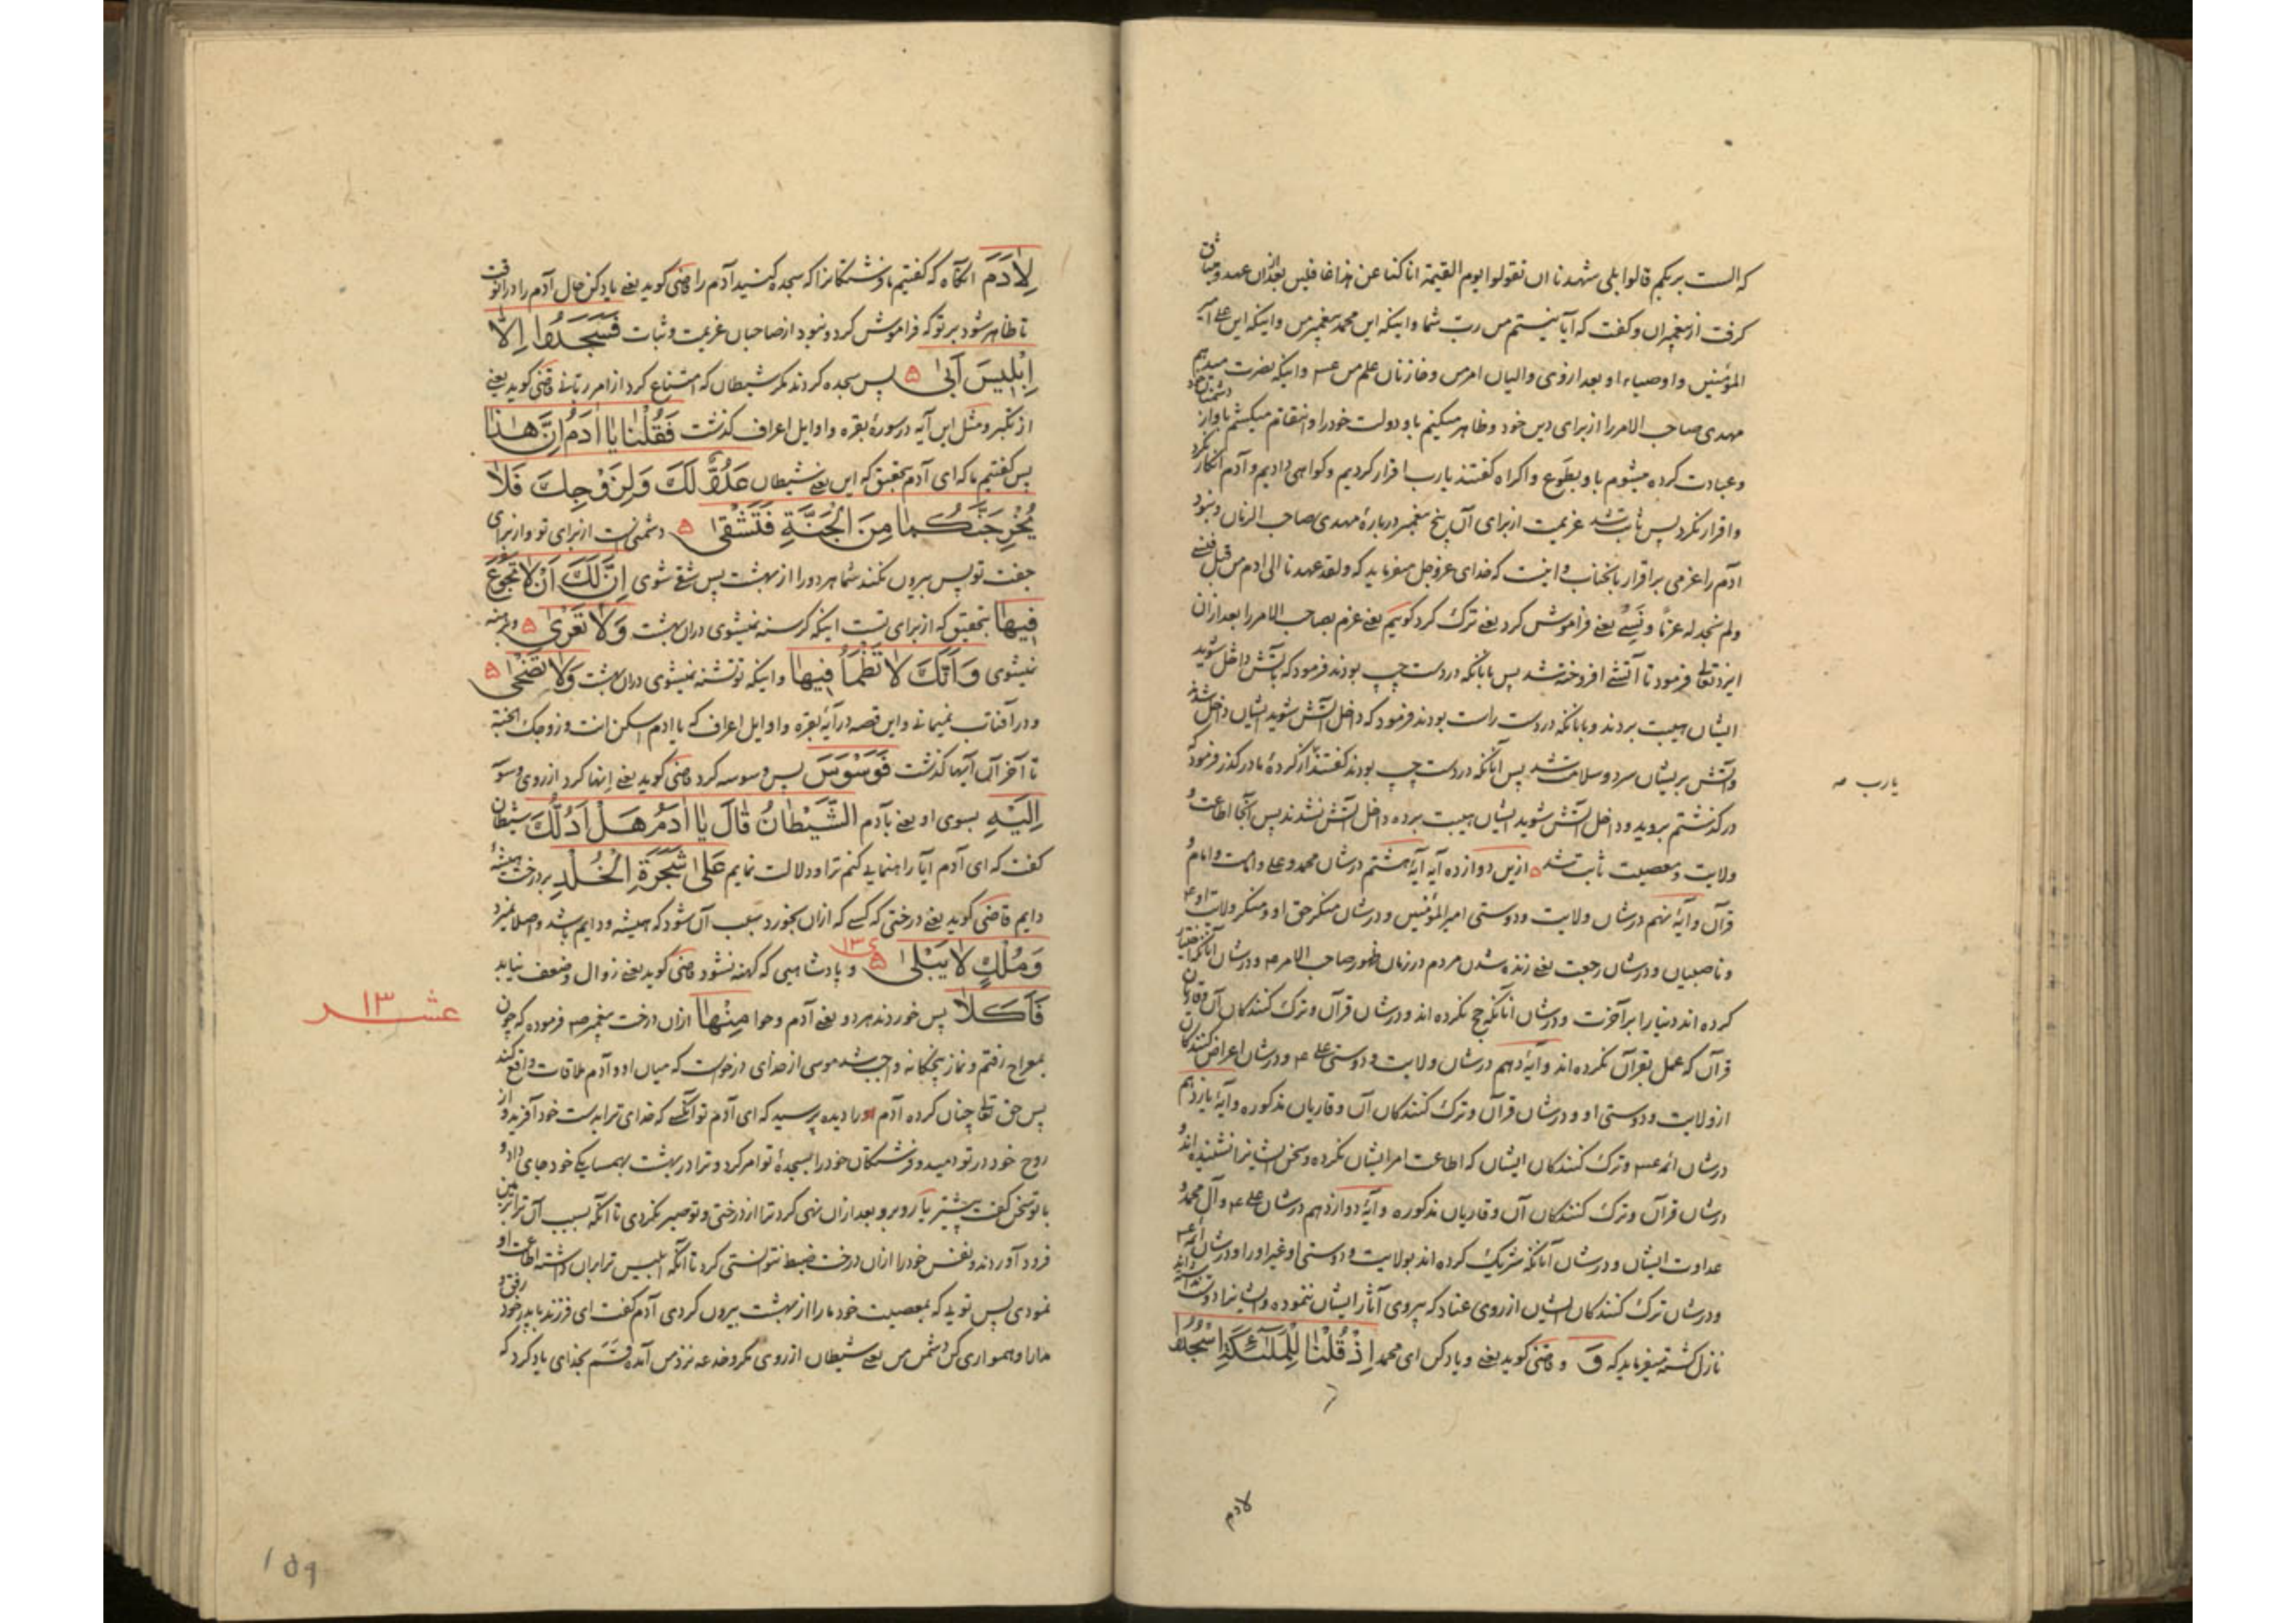 که الست بربکم قالوا بلی شهدنا ان تقولوا یوم القیمة انا کنا عن هذا غافلین بعد ازان عهد و میثاق
کرفت از پیغمبران و کفت که آیا نیستم من رب شما و اینکه این محمد پیغمبر من و اینکه این علی
المؤمنین و اوصیاء او بعد از وی والیان امر من و خازنان علم من و اینکه نصرت میدهم
مهدی صاحب الامر را از برای دین خود و ظاهر میکنم باو دولت خود را و انتقام میکشم باو از دشمنان خود
و عبادت کرده میشوم باو بطوع و اکراه کفتند یا رب اقرار کردیم و کواهی دادیم و آدم انکار نکرد
و اقرار نکرد پس ثابت شد عزیمت از برای آن پنج پیغمبر دربارۀ مهدی صاحب الزمان و نبود
آدم را عزمی بر اقرار بانجناب و اینست که خدای عزوجل میفرماید که ولقد عهدنا الی ادم من قبل فنسی
ولم نجد له عزما و نسی یعنی فراموش کرد یعنی ترک کرد کوییم یعنی عزم بصاحب الامر را بعد ازان
ایزد تعالی فرمود تا آتشی افروخته شد پس بآنانکه در دست چپ بودند فرمود که بآتش داخل شوید
ایشان هیبت بردند و بآنانکه در دست راست بودند فرمود که داخل آتش شوید ایشان داخل شدند
و آتش بریشان سرد و سلامت شد پس آنانکه در دست چپ بودند کفتند از کردۀ ما درکذر فرمود که
یارب
درکذشتم بروید و داخل آتش شوید ایشان هیبت برده داخل آتش نشدند پس آنجا اطاعت و
ولایت و معصیت ثابت شد ازین دوازده آیه آیۀ هشتم درشان محمد و علی و امامت و امام و
قرآن و آیۀ نهم درشان ولایت و دوستی امیرالمؤمنین و درشان منکر حق او و منکر ولایت او
و ناصبیان و درشان رجعت یعنی زنده شدن مردم در زمان ظهور صاحب الامر و درشان آنانکه اختیار
کرده اند دنیا را بر آخرت و درشان آنانکه حج نکرده اند و درشان قرآن و ترک کنندکان آن و قاریان
قرآن که عمل بقرآن نکرده اند و آیۀ دهم درشان ولایت و دوستی علی و درشان اعراض کنندکان
از ولایت و دوستی او و درشان قرآن و ترک کنندکان آن و قاریان مذکوره و آیۀ یازدهم
درشان ائمه و ترک کنندکان ایشان که اطاعت امر ایشان نکرده و سخن ایشانرا نشنیده اند و
درشان قرآن و ترک کنندکان آن و قاریان مذکوره و آیۀ دوازدهم درشان علی و آل محمد و
عداوت ایشان و درشان آنانکه شریک کرده اند بولایت و دوستی او غیر او را و درشان ائمه
و درشان ترک کنندکان ایشان از روی عناد که پیروی آثار ایشان ننموده و ایشانرا دوست نداشته اند
نازل کشته میفرماید که وَ و قاضی کوید یعنی و یاد کن ای محمد اِذْ قُلْنٰا لِلْمَلٰٓئِکَةِ اسْجُدُوا
لادم
لِاٰدَمَ انکاه که کفتیم ما فرشتکانرا که سجده کنید آدم را قاضی کوید یعنی یاد کن حال آدم را در انوقت
تا ظاهر شود بر تو که فراموش کرد و نبود از صاحبان عزیمت و ثبات فَسَجَدُوا اِلّٰا
اِبْلِیسَ اَبیٰ پس سجده کردند مکر شیطان که امتناع کرد از امر ربانی قاضی کوید یعنی
از تکبر و مثل این آیه در سورۀ بقره و اوایل اعراف کذشت فَقُلْنٰا یٰا اٰدَمُ اِنَّ هٰذٰا
پس کفتیم ما که ای آدم بتحقیق که این یعنی شیطان عَدُوٌّ لَکَ وَلِزَوْجِکَ فَلٰا
یُخْرِجَنَّکُمٰا مِنَ الْجَنَّةِ فَتَشْقیٰ دشمنست از برای تو و از برای
جفت تو پس بیرون نکند شما هر دو را از بهشت پس شقی شوی اِنَّ لَکَ اَنْ لٰا تَجُوعَ
فِیهٰا بتحقیق که از برای تست اینکه کرسنه نمیشوی دران بهشت وَلٰا تَعْریٰ و برهنه
نمیشوی وَاَنَّکَ لٰا تَظْمَأُ فِیهٰا و اینکه تو تشنه نمیشوی دران بهشت وَلٰا تَضْحیٰ
و در آفتاب نمیمانی و این قصه در آیۀ بقره و اوایل اعراف که یا ادم اسکن انت و زوجک الجنة
تا آخر آن آیها کذشت فَوَسْوَسَ پس وسوسه کرد قاضی کوید یعنی انها کرد از روی وسوسه
اِلَیْهِ بسوی او یعنی بآدم الشَّیْطٰانُ قٰالَ یٰا اٰدَمُ هَلْ اَدُلُّکَ شیطان
کفت که ای آدم آیا راهنمایی کنم ترا و دلالت نمایم عَلیٰ شَجَرَةِ الْخُلْدِ بر درخت همیشۀ
دایم قاضی کوید یعنی درختی که کسی که ازان بخورد سبب آن شود که همیشه و دایم باشد و اصلا نمیرد
وَمُلْکٍ لٰا یَبْلیٰ و پادشاهیی که کهنه نشود قاضی کوید یعنی زوال و ضعف نیابد
عشر ١٣
فَاَکَلٰا پس خوردند هر دو یعنی آدم و حوا مِنْهٰا ازان درخت پیغمبر فرموده که چون
بمعراج رفتم و نماز پنجکانه واجب شد موسی از خدای درخواست که میان او و آدم ملاقات واقع کند
پس حق تعالی چنان کرده آدم را دیده پرسید که ای آدم تو آنکسی که خدای ترا بدست خود آفرید و از
روح خود در تو دمید و فرشتکان خود را بسجدۀ تو امر کرد و ترا در بهشت بهمسایکی خود جای داد و
با تو سخن کفت پیشتر روبرو و بعد ازان نهی کرد ترا از درختی و تو صبر نکردی تا آنکه بسبب آن ترا بزمین
فرود آوردند و نفس خود را ازان درخت ضبط نتوانستی کرد تا آنکه ابلیس ترا بران داشته اطاعت او
نمودی پس تویی که بمعصیت خود ما را از بهشت بیرون کردی آدم کفت ای فرزند با پدر خود رفق و
مدارا و همواری کن دشمن من یعنی شیطان از روی مکر و خدعه نزد من آمده قسم بخدای یاد کرد که
١٥٩